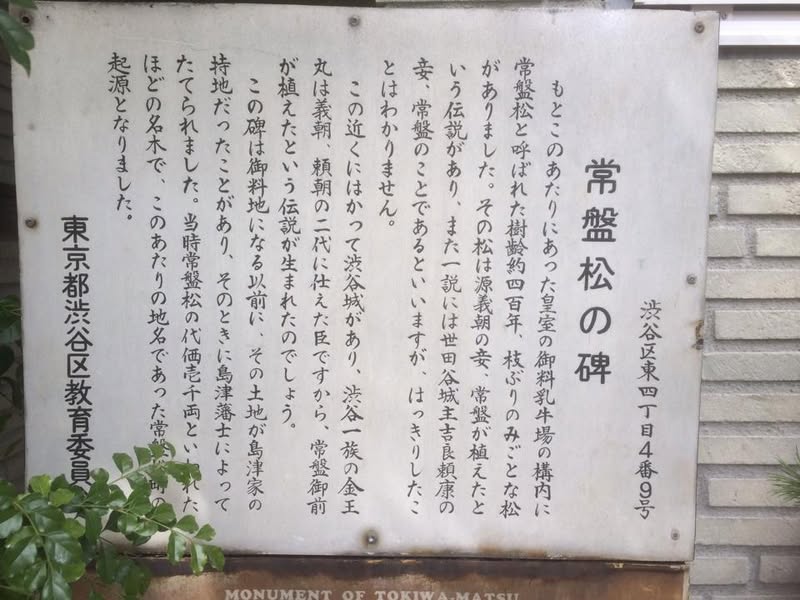 渋谷区東四丁目4番9号
常盤松の碑
もとこのあたりにあった皇室の御料乳牛場の構内に
常盤松と呼ばれた樹齢約四百年、枝ぶりのみごとな松
がありました。その松は源義朝の妾、常盤が植えたと
いう伝説があり、また一説には世田谷城主吉良頼康の
妾、常盤のことであるといいますが、はっきりしたこ
とはわかりません。
この近くにはかつて渋谷城があり、渋谷一族の金王
丸は義朝、頼朝の二代に仕えた臣ですから、常盤御前
が植えたという伝説が生まれたのでしょう。
この碑は御料地になる以前に、その土地が島津家の
持地だったことがあり、そのときに島津藩士によって
たてられました。当時常盤松の代価壱千両といわれた
ほどの名木で、このあたりの地名であった常盤松町の
起源となりました。
東京都渋谷区教育委員
MONUMENT OF TOKIWA-MATSU